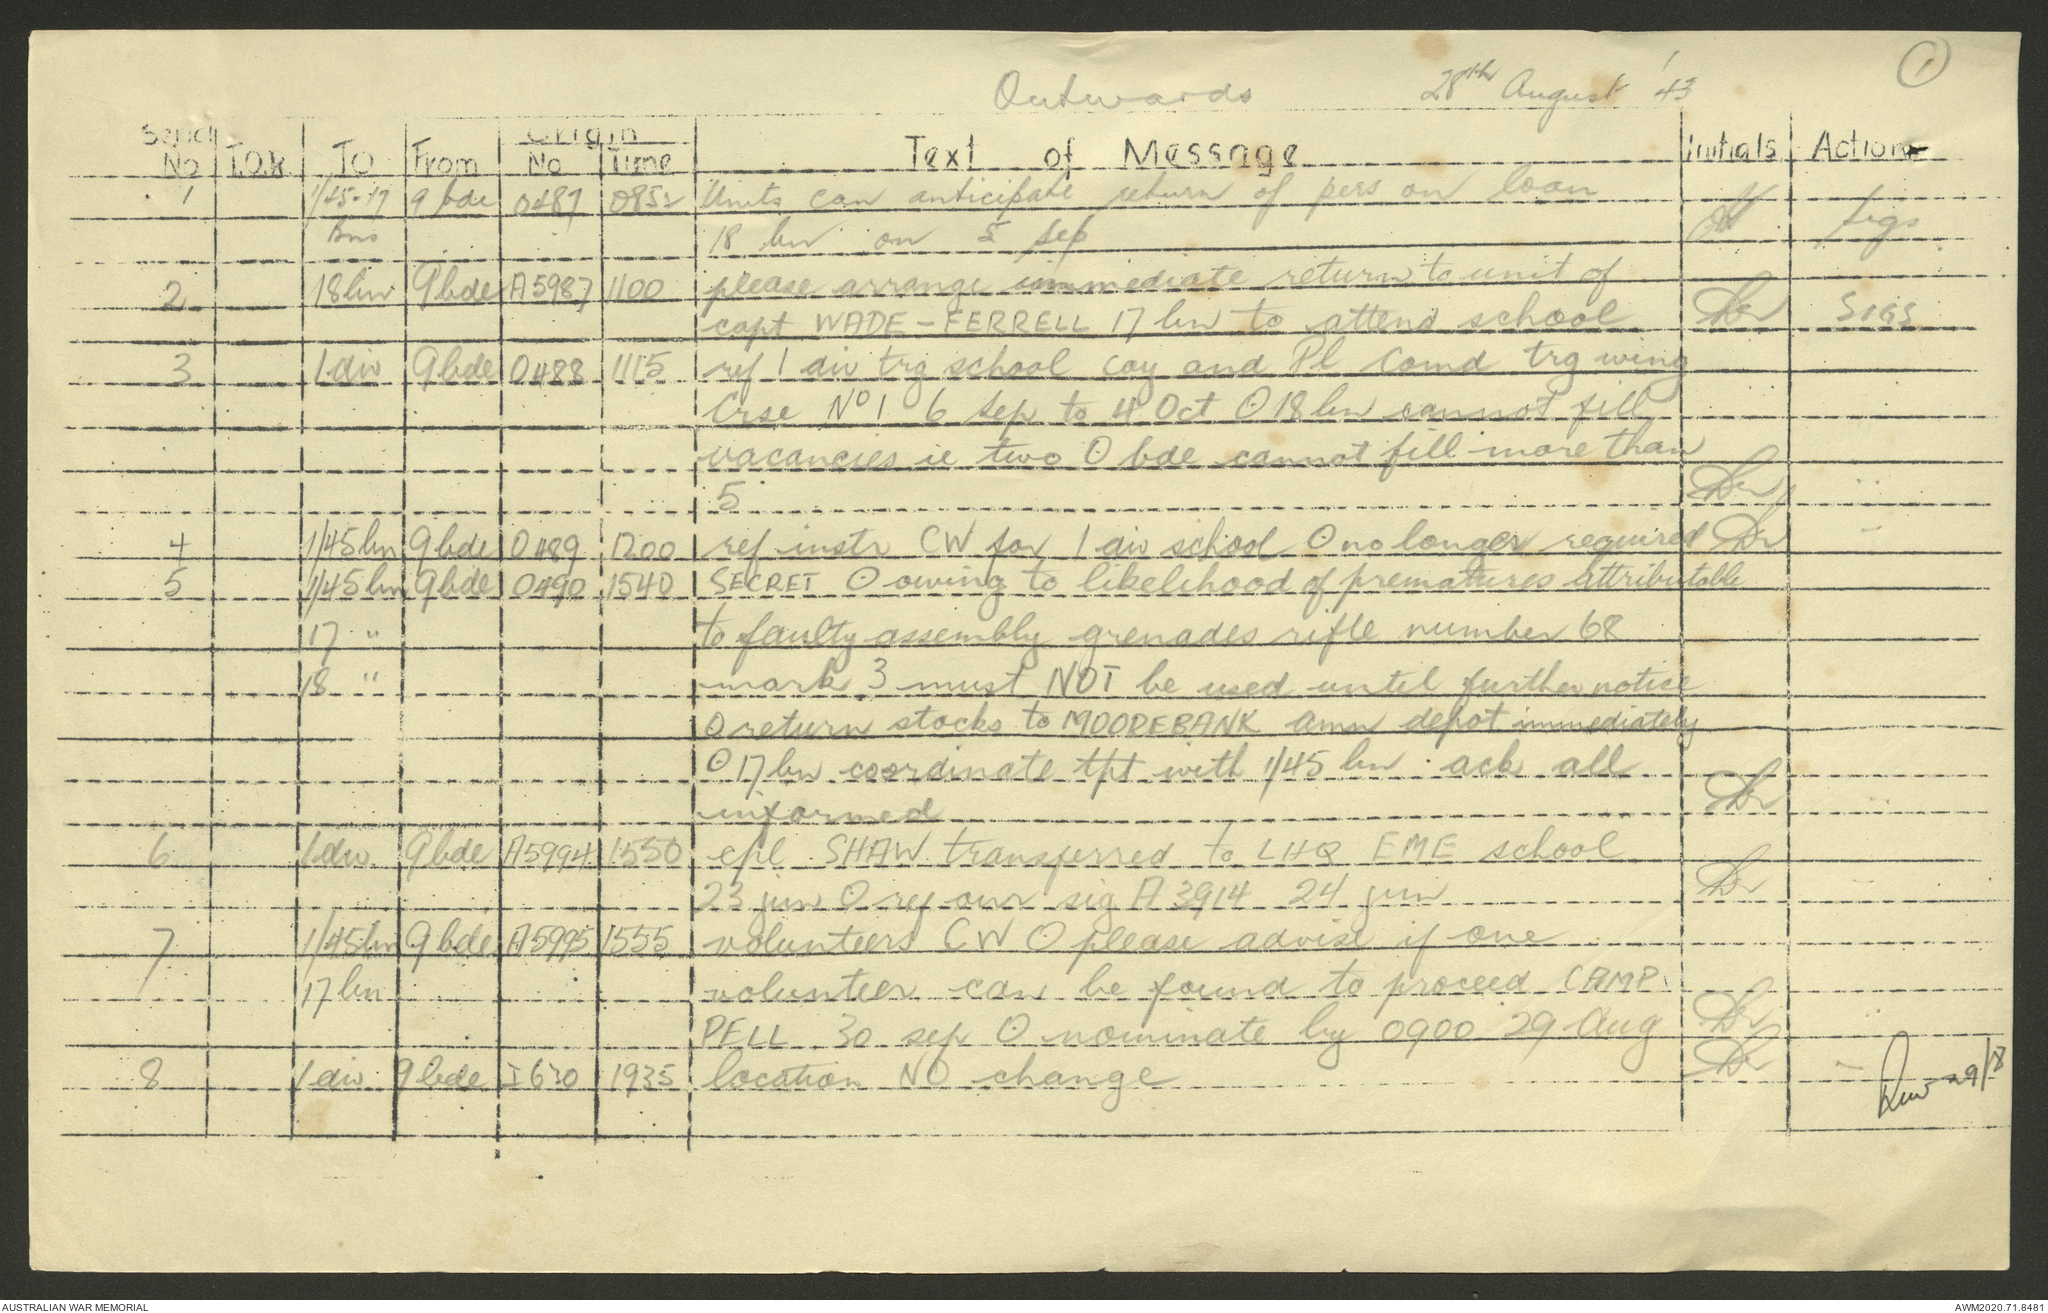 Outwards 28th August '43 1
Serial No T.O.R. TO From Origin No Time Text of Message Initials Action
1 1/45-17 9 bde 0487 0855 Units can anticipate return of pers on loan
Bns 18 bn on 5 Sep Sigs
2 18 bn 9 bde A5987 1100 please arrange immediate return to unit of
capt WADE-FERRELL 17 bn to attend school SIGS
3 1 div 9 bde 0488 1115 ref 1 div trg school coy and Pl Comd trg wing
Crse No 1 6 Sep to 4 Oct O 18 bn cannot fill
vacancies ie two O bde cannot fill more than
5 "
4 1/45 bn 9 bde 0489 1200 ref instr CW for 1 div school O no longer required "
5 1/45 bn 9 bde 0490 1540 SECRET O owing to likelihood of prematures attributable
17 " to faulty assembly grenades rifle number 68
18 " mark 3 must NOT be used until further notice
O return stocks to MOOREBANK amn depot immediately
O 17 bn coordinate tpt with 1/45 bn . ack all
informed "
6 1 div 9 bde A5994 1550 cpl SHAW transferred to LHQ EME school
23 jun O ref our sig A3914 24 jun "
7 1/45 bn 9 bde A5995 1555 volunteers CW O please advise if one
17 bn volunteer can be found to proceed CAMP
PELL 30 sep O nominate by 0900 29 Aug "
8 1 div 9 bde I630 1935 location NO change "
29/8
AUSTRALIAN WAR MEMORIAL AWM2020.71.8481